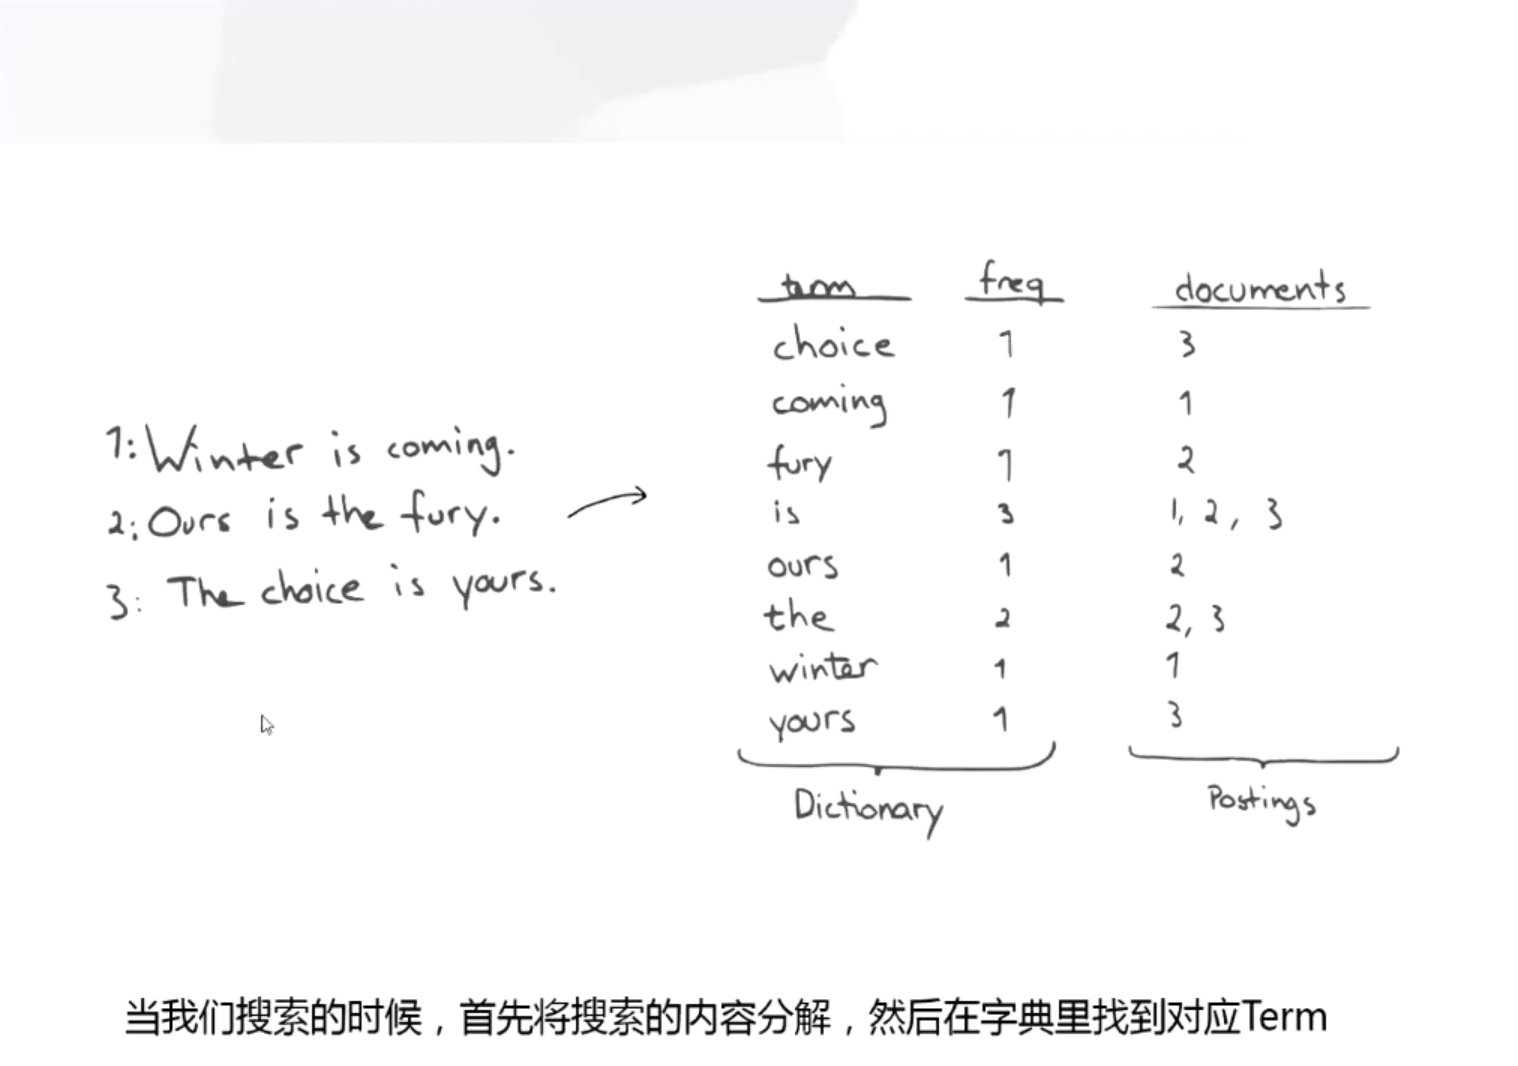 1: Winter is coming.
2: Ours is the fury.
3: The choice is yours.
term freq documents
choice 1 3
coming 1 1
fury 1 2
is 3 1, 2, 3
ours 1 2
the 2 2, 3
winter 1 1
yours 1 3
Dictionary Postings
当我们搜索的时候，首先将搜索的内容分解，然后在字典里找到对应Term